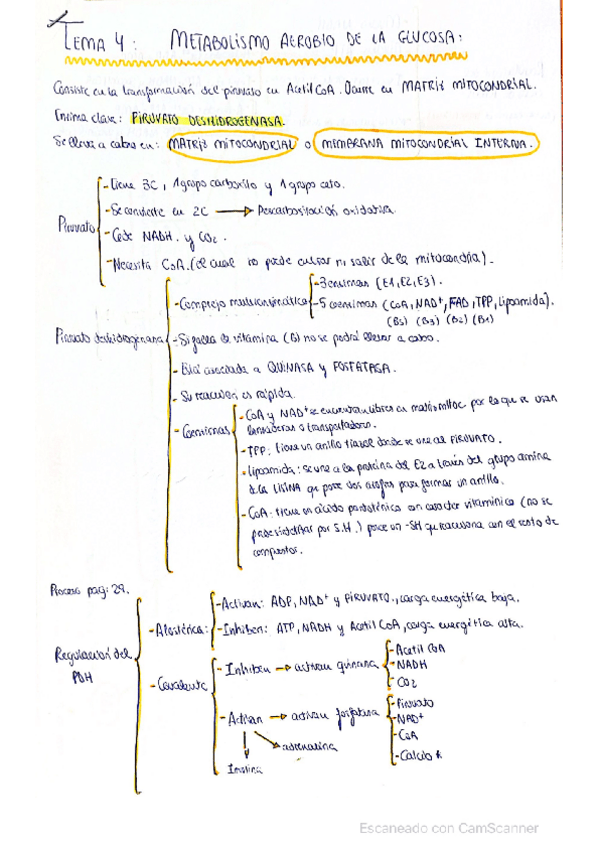 TEMA 4: METABOLISMO AEROBIO DE LA GLUCOSA:
Consiste en la transformación del piruvato en Acetil CoA. Ocurre en MATRIZ MITOCONDRIAL.
Enzima clave: PIRUVATO DESHIDROGENASA.
Se lleva a cabo en: MATRIZ MITOCONDRIAL o MEMBRANA MITOCONDRIAL INTERNA.
- Tiene 3C, 1 grupo carboxilo y 1 grupo ceto.
- Se convierte en 2C → Descarboxilación oxidativa.
Piruvato
- Cede NADH. y CO2.
- Necesita CoA. (el cual no puede entrar ni salir de la mitocondria).
- Complejo multienzimático
- 3 enzimas (E1, E2, E3).
- 5 coenzimas (CoA, NAD+, FAD, TPP, Lipoamida).
(B5) (B3) (B2) (B1)
Piruvato deshidrogenasa
- Si falta la vitamina (B) no se podrá llevar a cabo.
- Está asociada a QUINASA y FOSFATASA.
- Su reacción es rápida.
- Coenzimas
- CoA y NAD+ se encuentran libres en matriz mitoc por lo que se usan
lanzaderas o transportadores.
- TPP: tiene un anillo tiazol donde se une al PIRUVATO.
- Lipoamida: se une a la proteína del E2 a través del grupo amina
de la LISINA que posee dos azufres para formar un anillo.
- CoA: tiene un ácido pantoténico con carácter vitamínico (no se
puede sintetizar por S.H.) posee un -SH que reacciona con el resto de
compuestos.
Proceso pag: 29.
Regulación del
PDH
- Alostérica:
- Activan: ADP, NAD+ y PIRUVATO., carga energética baja.
- Inhiben: ATP, NADH y Acetil CoA, carga energética alta.
- Covalente
- Inhiben → activan quinasa
- Acetil CoA
- NADH
- CO2
- Activan → activan fosfatasa
- Piruvato
- NAD+
- CoA
- Calcio
adrenalina
Insulina
Escaneado con CamScanner